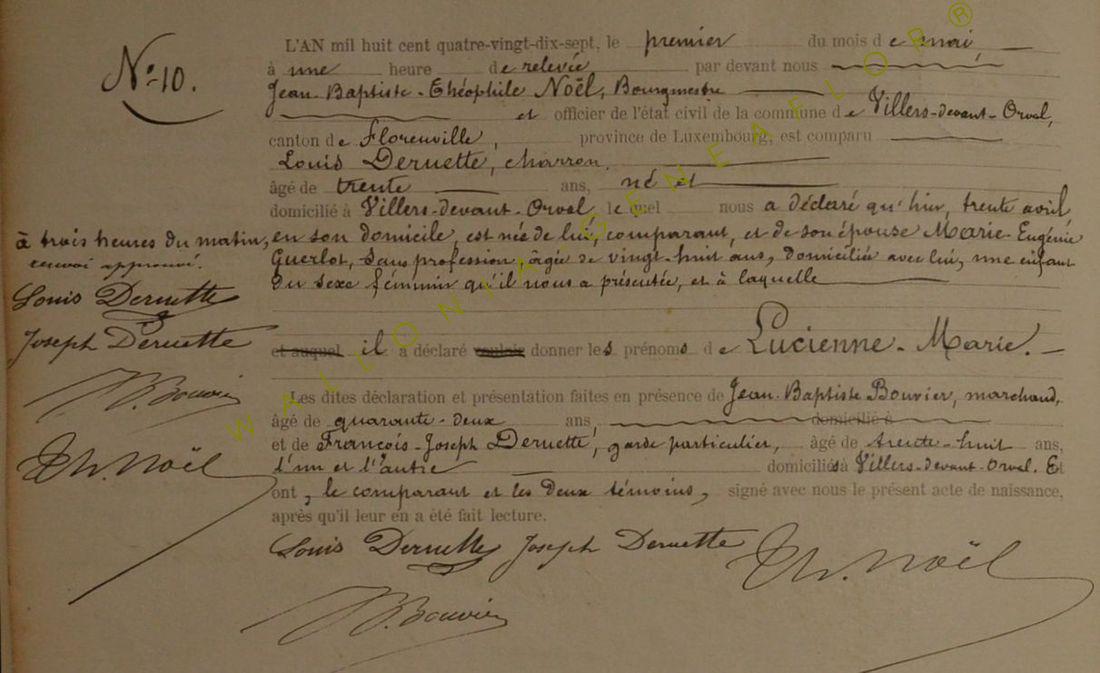 N° 10.
L'AN mil huit cent quatre-vingt-dix-sept, le premier du mois de mai,
à une heure de relevée par devant nous
Jean-Baptiste-Théophile Noël, Bourgmestre
et officier de l'état civil de la commune de Villers-devant-Orval,
canton de Florenville, province de Luxembourg, est comparu
Louis Deruette, charron,
âgé de trente ans, né et
domicilié à Villers-devant-Orval lequel nous a déclaré qu'hier, trente avril
à trois heures du matin, en son domicile, est née de lui, comparant, et de son épouse Marie-Eugénie
renvoi approuvé.
Guerlot, sans profession, âgée de vingt-huit ans, domiciliée avec lui, une enfant
du sexe féminin qu'il nous a présentée, et à laquelle
Louis Deruette
Joseph Deruette
et auquel il a déclaré vouloir donner les prénoms de Lucienne-Marie.
JB. Bouvier
Th. Noël
Les dites déclaration et présentation faites en présence de Jean-Baptiste Bouvier, marchand,
âgé de quarante-deux ans, domicilié à
et de François-Joseph Deruette, garde particulier, âgé de trente-huit ans,
l'un et l'autre domiciliés à Villers-devant-Orval. Et
ont, le comparant et les deux témoins, signé avec nous le présent acte de naissance,
après qu'il leur en a été fait lecture.
Louis Deruette Joseph Deruette Th. Noël
JB. Bouvier
WALLONIA GENEAFLOR®